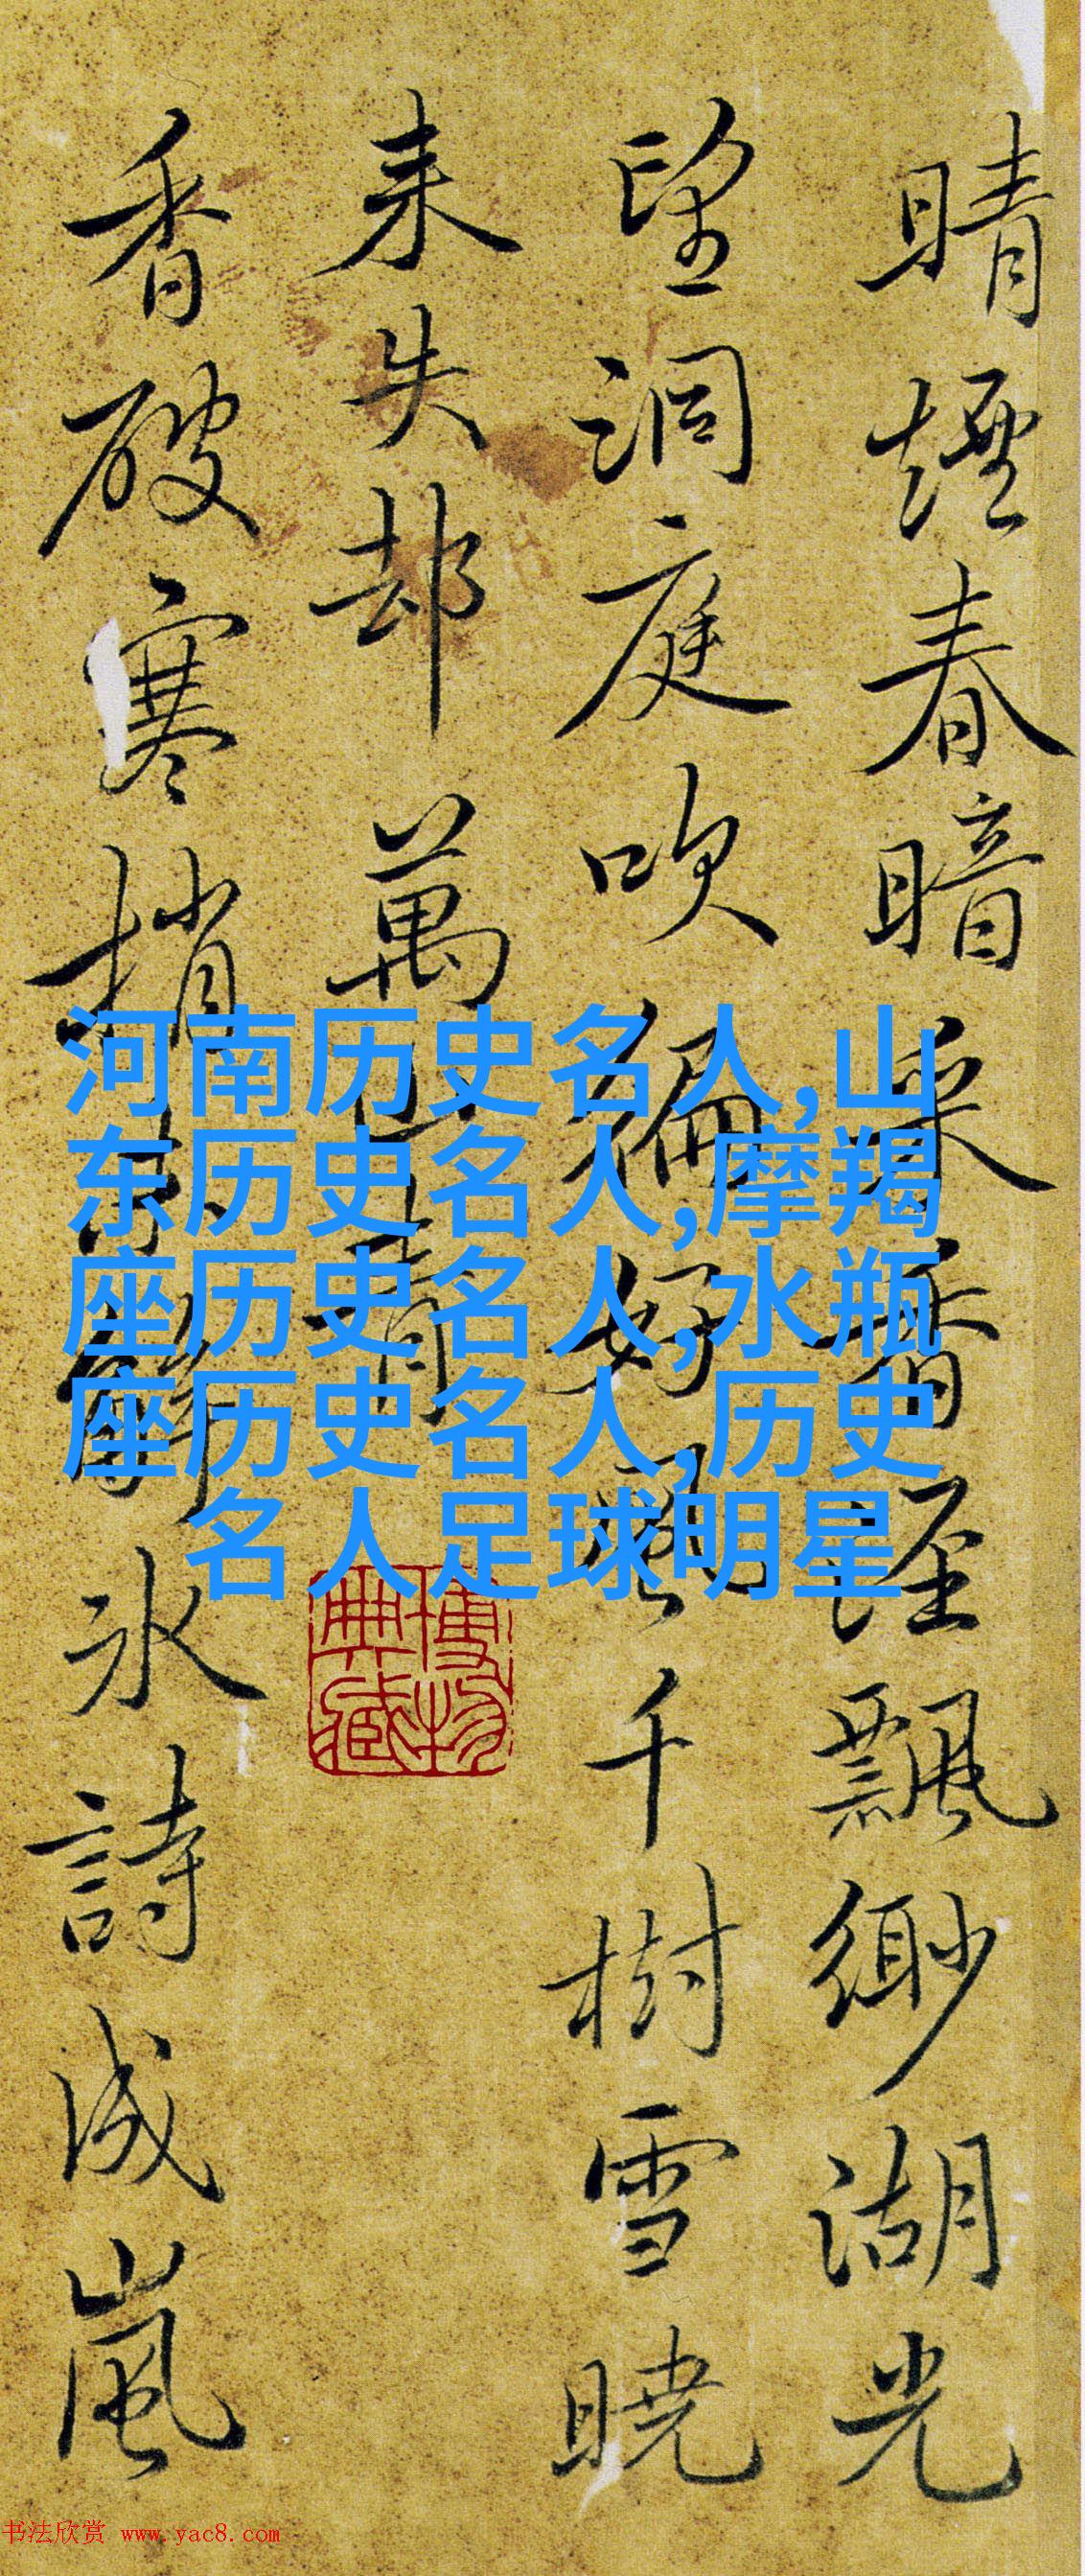 晴煙春暗采香徑飄緲湖光
望洞庭吹徧好風千樹雪曉
来失却萬山青
香破寒梢解冰詩成嵐
河南历史名人,山
东历史名人,摩羯
座历史名人,水瓶
座历史名人,历史
名人足球明星
博物
典藏
书法欣赏 www.yac8.com